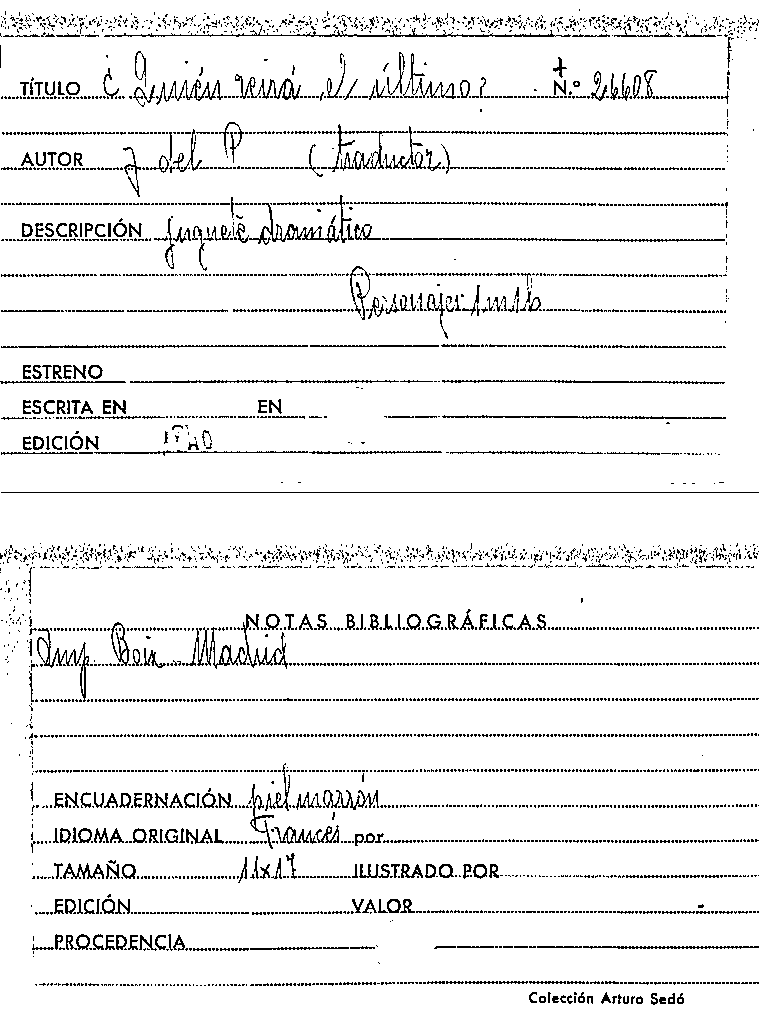 TÍTULO ¿Quién reirá el último? + N.º 26608
AUTOR J del P (traductor)
DESCRIPCIÓN juguete dramático
Personajes 1m1h
ESTRENO
ESCRITA EN EN
EDICIÓN 1840
NOTAS BIBLIOGRÁFICAS
Imp. Boix - Madrid
ENCUADERNACIÓN piel marrón
IDIOMA ORIGINAL Francés por
TAMAÑO 11x17 ILUSTRADO POR
EDICIÓN VALOR
PROCEDENCIA
Colección Arturo Sedó